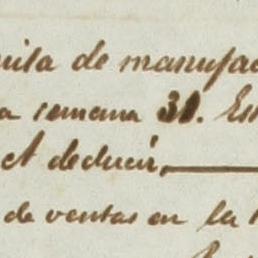 de manufac
a semana 31. Es
deducir,
de ventas en la